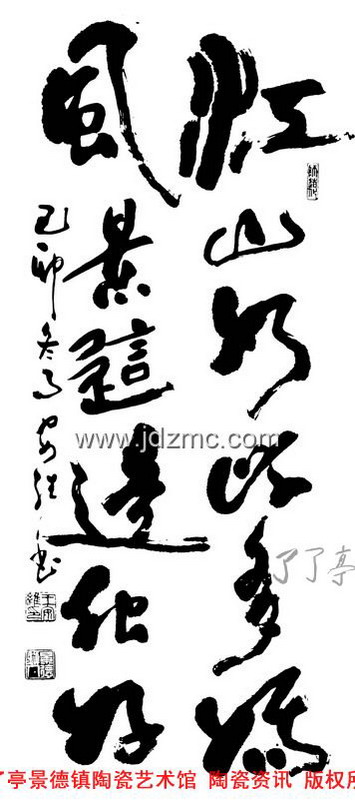 江山如此多嬌
風景這邊独好
己卯冬月安维书
www.jdzmc.com
了了亭
了亭景德镇陶瓷艺术馆 陶瓷资讯 版权所